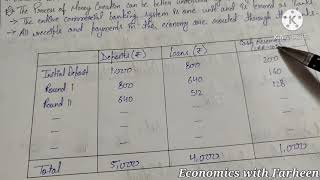 The Process of Money Creation can be better understood
→ The entire commercial banking system is one unit and is termed as 'Banks'
→ All receipts and payments in the economy are routed through the Banks.
Deposits (₹) Loans (₹) Cash Reserves (₹)
Initial Deposit 1,000 800 200
Round I 800 640 160
Round II 640 512 128
Total 5,000 4,000 1,000
Economics with Farheen